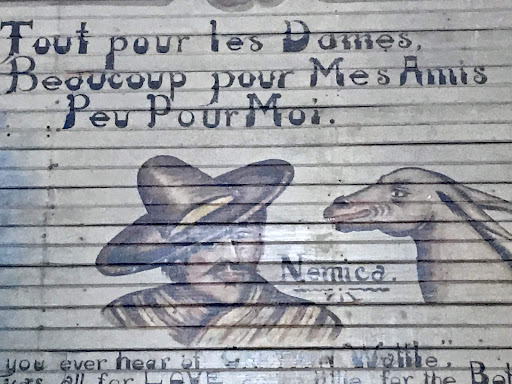 Tout pour les Dames,
Beaucoup pour Mes Amis
Peu Pour Moi.
Nemica.
you ever hear of Wattle",
was all for LOVE little for the